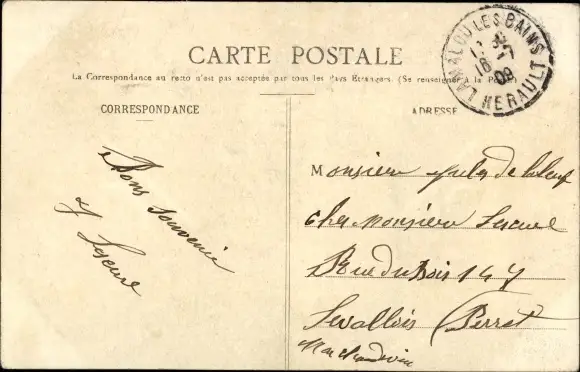 CARTE POSTALE
La Correspondance au recto n'est pas acceptée par tous les pays Etrangers. (Se renseigner à la Poste)
CORRESPONDANCE
ADRESSE
LAMALOU LES BAINS
16 -7
09
HERAULT
Bons souvenir
J Leseure
Monsieur Jules
chez Monsieur Leseure
Rue du Bois 147
Levallois Perret